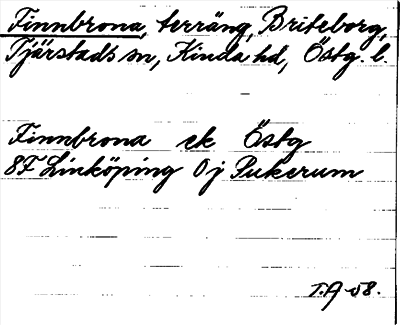 Finnbrona, terräng, Briteborg,
Tjärstads sn, Kinda hd, Östg. l.
Finnbrona ek Östg
8F Linköping 0j Pukerum